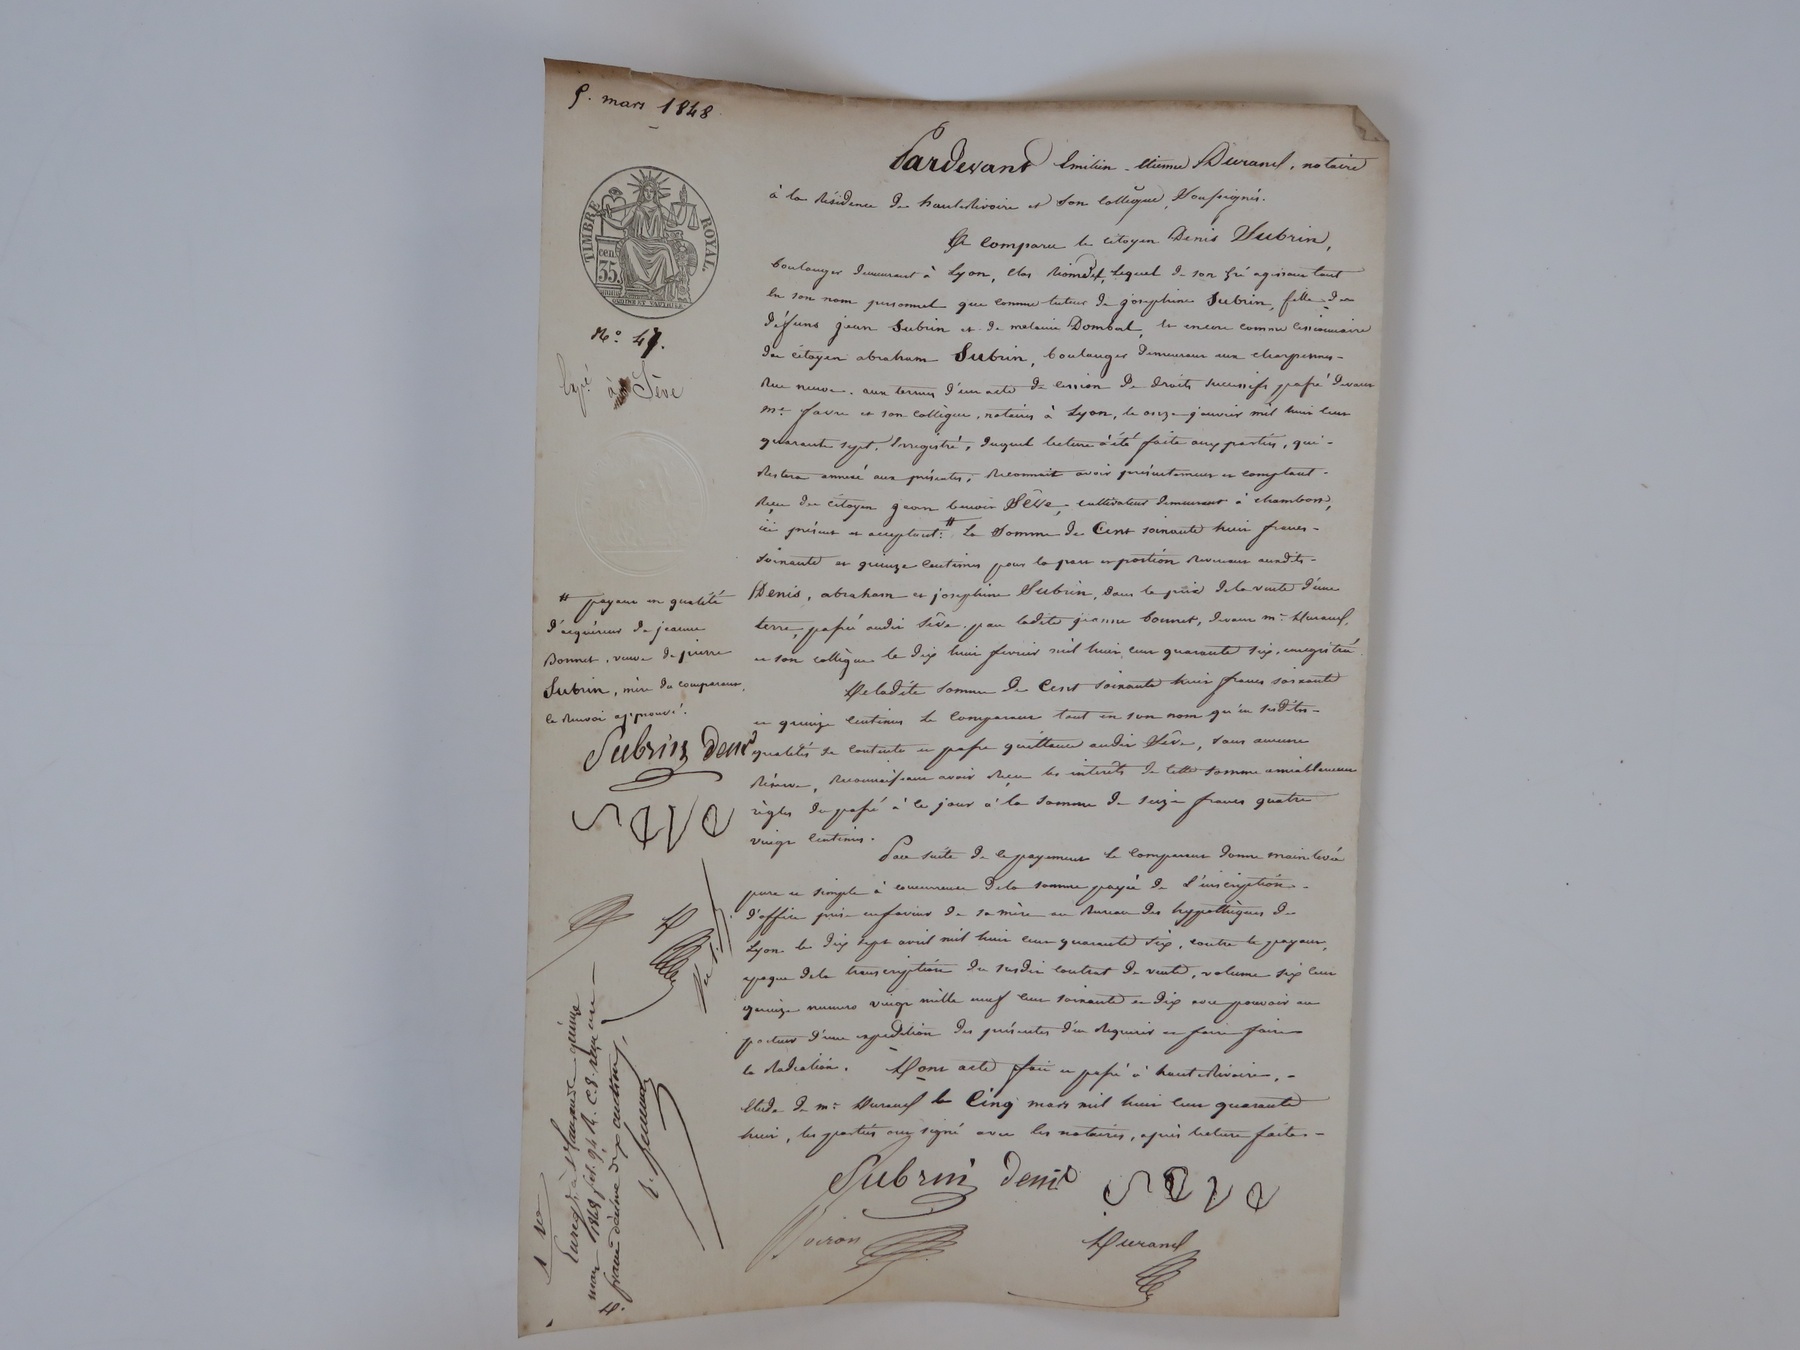 5. mars 1848
TIMBRE ROYAL.
35
cen
N.° 47.
Exp.é à Sève
Pardevant Emilien-Etienne Durand, notaire
à la Résidence de haute Rivoire et son collègue, soussignés.
A Comparu le citoyen Denis Subrin,
boulanger demeurant à Lyon, clos, lequel de son gré agissant tant
en son nom personnel que comme tuteur de josephine Subrin, fille de
défunt jean Subrin et de melanie Dombal, et encore comme cessionnaire
du citoyen abraham Subrin, boulanger demeurant aux charpennes-
Rue neuve. aux termes d'un acte de cession de droits successifs passé devant
me. favre et son collègue, notaires à Lyon, le onze janvier mil huit cent
quarante sept, Enregistré, duquel lecture a été faite aux parties, qui-
Restera annexé aux présentes, Reconnait avoir présentement et comptant-
Reçu du citoyen jean benoit Sève, cultivateur demeurant à chambost,
ici présent et acceptant: # La Somme de Cent soixante huit francs-
soixante et quinze Centimes pour la part et portion Revenant auxdits-
Denis, abraham et josephine Subrin, dans le prix de la vente d'une
terre, passé audit Sève par ladite jeanne bonnet, devant me. Durand,
et son collègue le dix huit fevrier mil huit cent quarante six, enregistré
De ladite somme de Cent soixante huit francs soixante
et quinze Centimes le Comparant tant en son nom qu'en susdites-
qualités se contente et passe quittance audit Sève, sans aucune
Réserve, Reconnaissant avoir Reçu les intérêts de cette somme amiablement
règlés et passé à ce jour à la somme de seize francs quatre
vingt Centimes.
Par suite de ce payement le Comparant donne main levée
pure et simple à concurrence de la somme payée de L'inscription-
d'office prise en faveur de sa mère au Bureau des hypothèques de
Lyon le dix sept avril mil huit cent quarante six, contre le payeur,
epoque de la transcription du susdit contrat de vente, volume six cent
quinze numero vingt mille neuf cent soixante et dix avec pouvoir au
porteur d'une expedition des présentes d'en Requerir et faire faire
la Radiation. Dont acte fait et passé à haute Rivoire, -
Etude de me. Durand le Cinq mars mil huit cent quarante
huit, les parties ont signé avec les notaires, après lecture faite-
Subrin denis
Seve
Poiron
Durand
# payant en qualité
d'acquéreur de jeanne
Bonnet, veuve de pierre
Subrin, mère du comparant,
le Renvoi approuvé.
Subrin denis
Seve
D
1 Re
Enreg. à le quinze
mars 1848 fol. 94 R. C. 8. reçu un
franc décime dix centimes